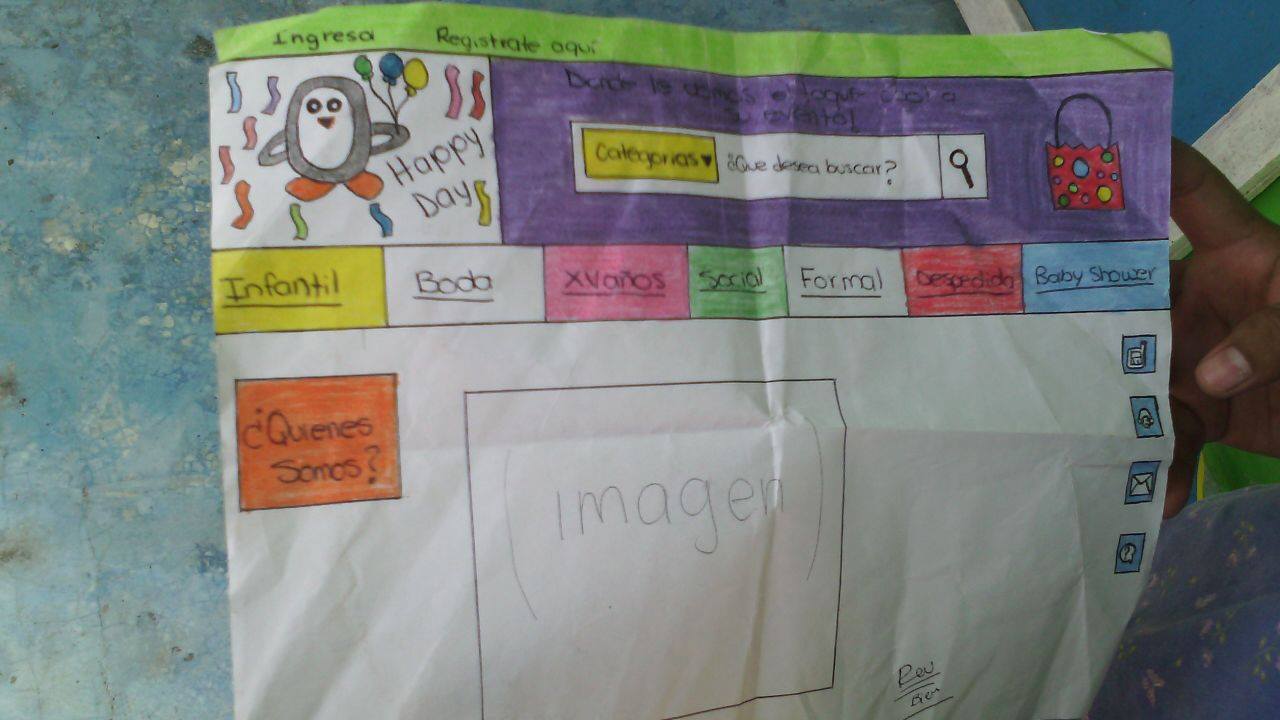 Ingresa Registrate aquí
Donde le damos el toque a
su evento!
Happy
Day
Categorias ¿Que desea buscar?
Infantil Boda XVaños Social Formal Despedida Baby Shower
¿Quienes
Somos?
(imagen)
Rev
Bien